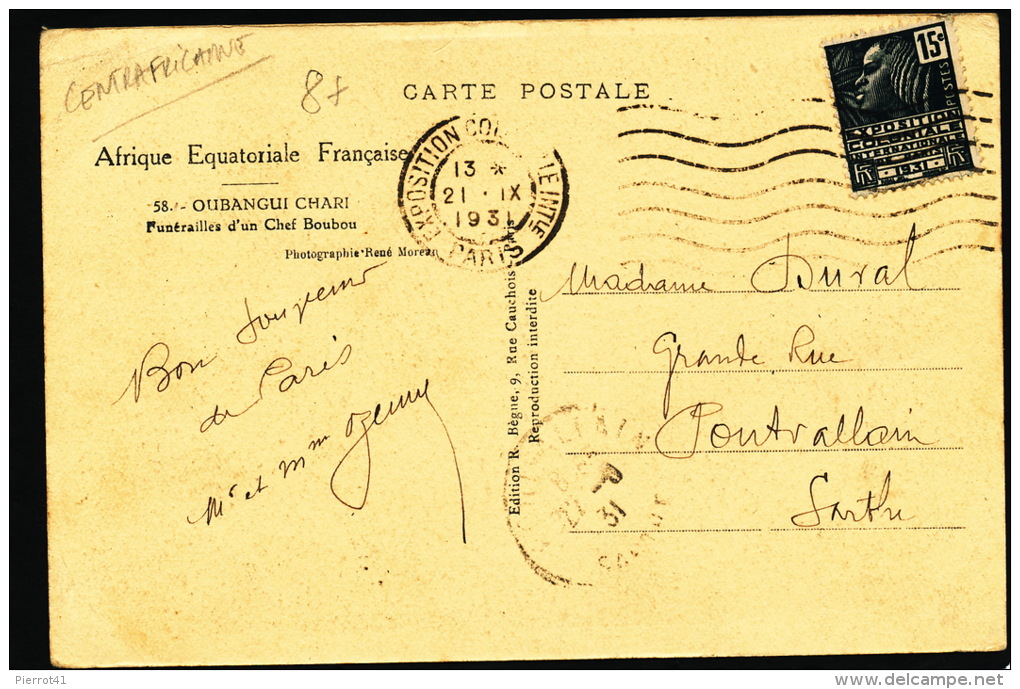 CENTRAFRICAINE
8f
CARTE POSTALE
Afrique Equatoriale Française
58. - OUBANGUI CHARI
Funérailles d'un Chef Boubou
Photographie René Moreau
EXPOSITION COLONIALE INTLE
13 *
21 · IX
1931
PARIS
15c
POSTES
EXPOSITION
COLONIALE
INTERNATIONALE
1931
Bon Souvenir
de Paris
Mr et Mme
Edition R. Bègue, 9, Rue Cauchois - Paris
Reproduction interdite
Madame Duval
Grande Rue
Pontvallain
Sarthe
31
Pierrot41
delcampe.net